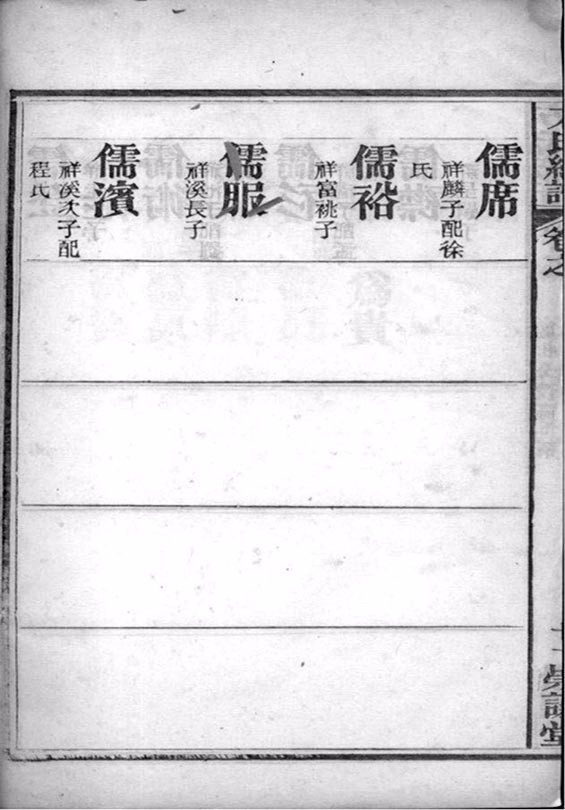 儒席
祥麟子配徐
氏
儒裕
祥富祧子
儒服
祥溪長子
儒濱
祥溪次子配
程氏